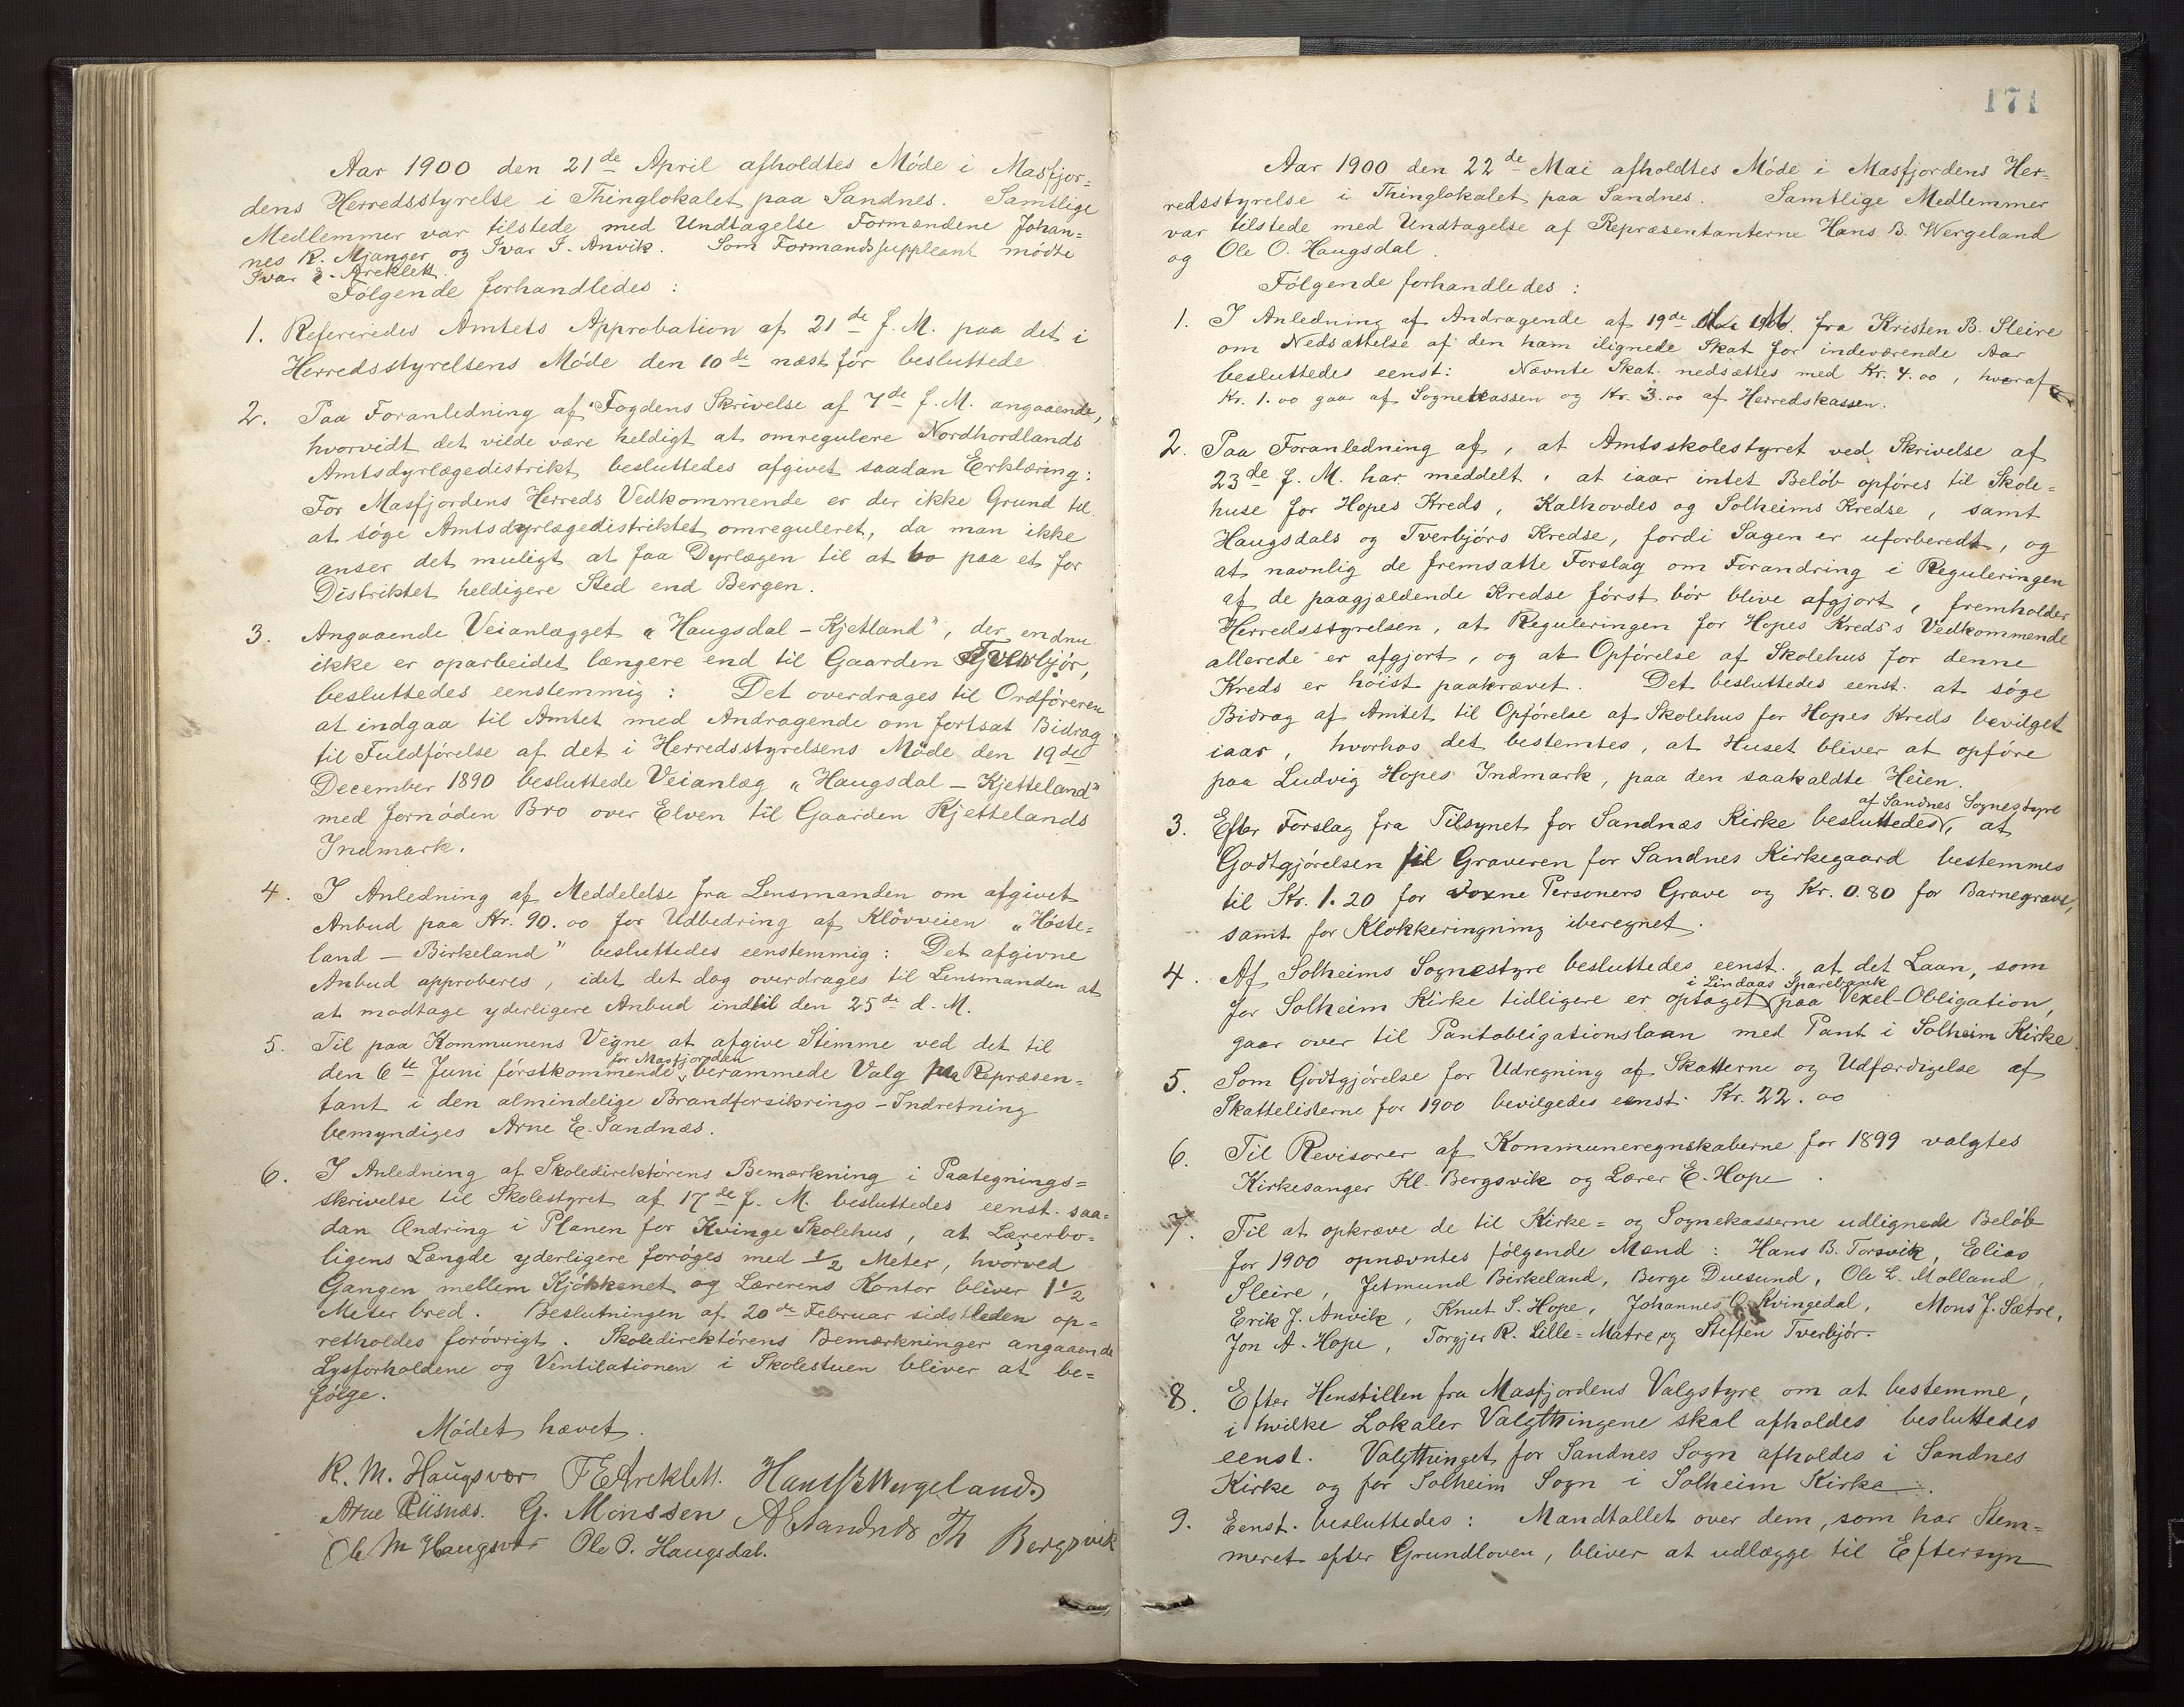 Aar 1900 den 21de April afholdtes Møde i Masfjor=
dens Herredsstyrelse i Thinglokalet paa Sandnes. Samtlige
Medlemmer var tilstede med Undtagelse Formændene Johan=
nes K. Mjanger og Ivar I. Anvik. Som Formandssuppleant mødte
Ivar E. Areklett.
Følgende forhandledes :
1. Refereredes Amtets Approbation af 21de f. M. paa det i
Herredsstyrelsens Møde den 10de næst før besluttede
2. Paa Foranledning af Fogdens Skrivelse af 7de f. M. angaaende,
hvorvidt det vilde være heldigt at omregulere Nordhordlands
Amtsdyrlægedistrikt besluttedes afgivet saadan Erklæring:
For Masfjordens Herreds Vedkommende er der ikke Grund til
at søge Amtsdyrlægedistriktet omreguleret, da man ikke
anser det muligt at faa Dyrlægen til at bo paa et for
Distriktet heldigere Sted end Bergen.
3. Angaaende Veianlægget "Haugsdal - Kjetland", der endnu
ikke er oparbeidet længere end til Gaarden Tverbjør,
besluttedes eenstemmig : Det overdrages til Ordføreren
at indgaa til Amtet med Andragende om fortsat Bidrag
til Fuldførelse af det i Herredsstyrelsens Møde den 19de
December 1890 besluttede Veianlæg "Haugsdal - Kjetteland"
med fornøden Bro over Elven til Gaarden Kjettelands
Indmark.
4. I Anledning af Meddelelse fra Lensmanden om afgivet
Anbud paa Kr. 90.00 for Udbedring af Kløvveien "Høste=
land - Birkeland" besluttedes eenstemmig : Det afgivne
Anbud approberes, idet det dog overdrages til Lensmanden at
at modtage yderligere Anbud indtil den 25de d. M.
5. Til paa Kommunens Vegne at afgive Stemme ved det til
den 6te Juni førstkommende for Masfjorden berammede Valg paa Repræsen=
tant i den almindelige Brandforsikrings-Indretning
bemyndiges Arne E. Sandnæs.
6. I Anledning af Skoledirektørens Bemærkning i Paategnings=
skrivelse til Skolestyret af 17de f. M. besluttedes eenst. saa=
dan Ændring i Planen for Kvinge Skolehus, at Lærerbo=
ligens Længde yderligere forøges med 1/2 Meter, hvorved
Gangen mellem Kjøkkenet og Lærerens Kontor bliver 1 1/2
Meter bred. Beslutningen af 20de Februar sidstleden op=
retholdes forøvrigt. Skoledirektørens Bemærkninger angaaende
Lysforholdene og Ventilationen i Skolestuen bliver at be=
følge.
Mødet hævet.
K. M. Haugsvær I E Areklett. Hans B Wergeland.
Arne Riisnæs. G. Monssen A E Sandnes Th Bergsvik
Ole M Haugsvær Ole O. Haugsdal.
171
Aar 1900 den 22de Mai afholdtes Møde i Masfjordens Her=
redsstyrelse i Thinglokalet paa Sandnes. Samtlige Medlemmer
var tilstede med Undtagelse af Repræsentanterne Hans B. Wergeland
og Ole O. Haugsdal.
Følgende forhandledes :
1. I Anledning af Andragende af 19de d. M. fra Kristen B. Sleire
om Nedsættelse af den ham ilignede Skat for indeværende Aar
besluttedes eenst: Nævnte Skat nedsættes med Kr. 4.00, hvoraf
Kr. 1.00 gaar af Sognekassen og Kr. 3.00 af Herredskassen.
2. Paa Foranledning af, at Amtsskolestyret ved Skrivelse af
23de f. M. har meddelt, at iaar intet Beløb opføres til Skole=
huse for Hopes Kreds, Kalhovdes og Solheims Kredse, samt
Haugsdals og Tverbjørs Kredse, fordi Sagen er uforberedt, og
at navnlig de fremsatte Forslag om Forandring i Reguleringen
af de paagjældende Kredse først bør blive afgjort, fremholder
Herredsstyrelsen, at Reguleringen for Hopes Kreds's Vedkommende
allerede er afgjort, og at Opførelse af Skolehus for denne
Kreds er høist paakrævet. Det besluttedes eenst. at søge
Bidrag af Amtet til Opførelse af Skolehus for Hopes Kreds bevilget
iaar, hvorhos det bestemtes, at Huset bliver at opføre
paa Ludvig Hopes Indmark, paa den saakaldte Heien.
3. Efter Forslag fra Tilsynet for Sandnæs Kirke besluttedes af Sandnes Sognestyre, at
Godtgjørelsen til Graveren for Sandnes Kirkegaard bestemmes
til Kr. 1.20 for voxne Personers Grave og Kr. 0.80 for Barnegrave,
samt for Klokkeringning iberegnet.
4. Af Solheims Sognestyre besluttedes eenst. at det Laan, som
for Solheim Kirke tidligere er optaget i Lindaas Sparebank paa Vexel-Obligation,
gaar over til Pantobligationslaan med Pant i Solheim Kirke.
5. Som Godtgjørelse for Udregning af Skatterne og Udfærdigelse af
Skattelisterne for 1900 bevilgedes eenst. Kr. 22.00
6. Til Revisorer af Kommuneregnskaberne for 1899 valgtes
Kirkesanger Kl. Bergsvik og Lærer E. Hope.
7. Til at opkræve de til Kirke= og Sognekasserne udlignede Beløb
for 1900 opnævntes følgende Mænd : Hans B. Torsvik, Elias
Sleire, Jetmund Birkeland, Berge Duesund, Ole L. Molland,
Erik J. Anvik, Knut S. Hope, Johannes O. Kvingedal, Mons J. Sætre,
Jon A. Hope, Torgjer R. Lille=Matre og Steffen Tverbjør.
8. Efter Henstillen fra Masfjordens Valgstyre om at bestemme,
i hvilke Lokaler Valgthingene skal afholdes besluttedes
eenst. Valgthinget for Sandnes Sogn afholdes i Sandnes
Kirke og for Solheim Sogn i Solheim Kirke.
9. Eenst. besluttedes : Mandtallet over dem, som har Stem=
meret efter Grundloven, bliver at udlægge til Eftersyn